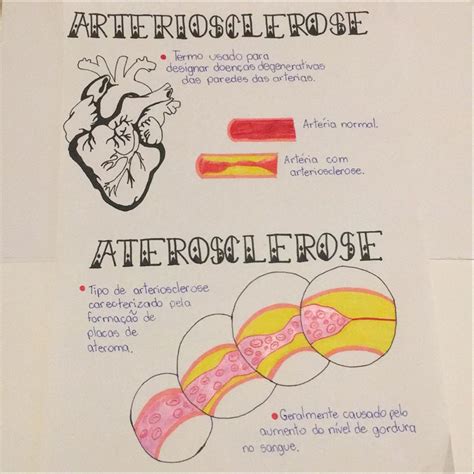 ARTERIOSCLEROSE
• Termo usado para
designar doenças degenerativas
das paredes das arterias.
Artéria normal.
Artéria com
arteriosclerose.
ATEROSCLEROSE
• Tipo de arteriosclerose
carecterizado pela
formação de
placas de
ateroma.
• Geralmente causado pelo
aumento do nível de gordura
no sangue.